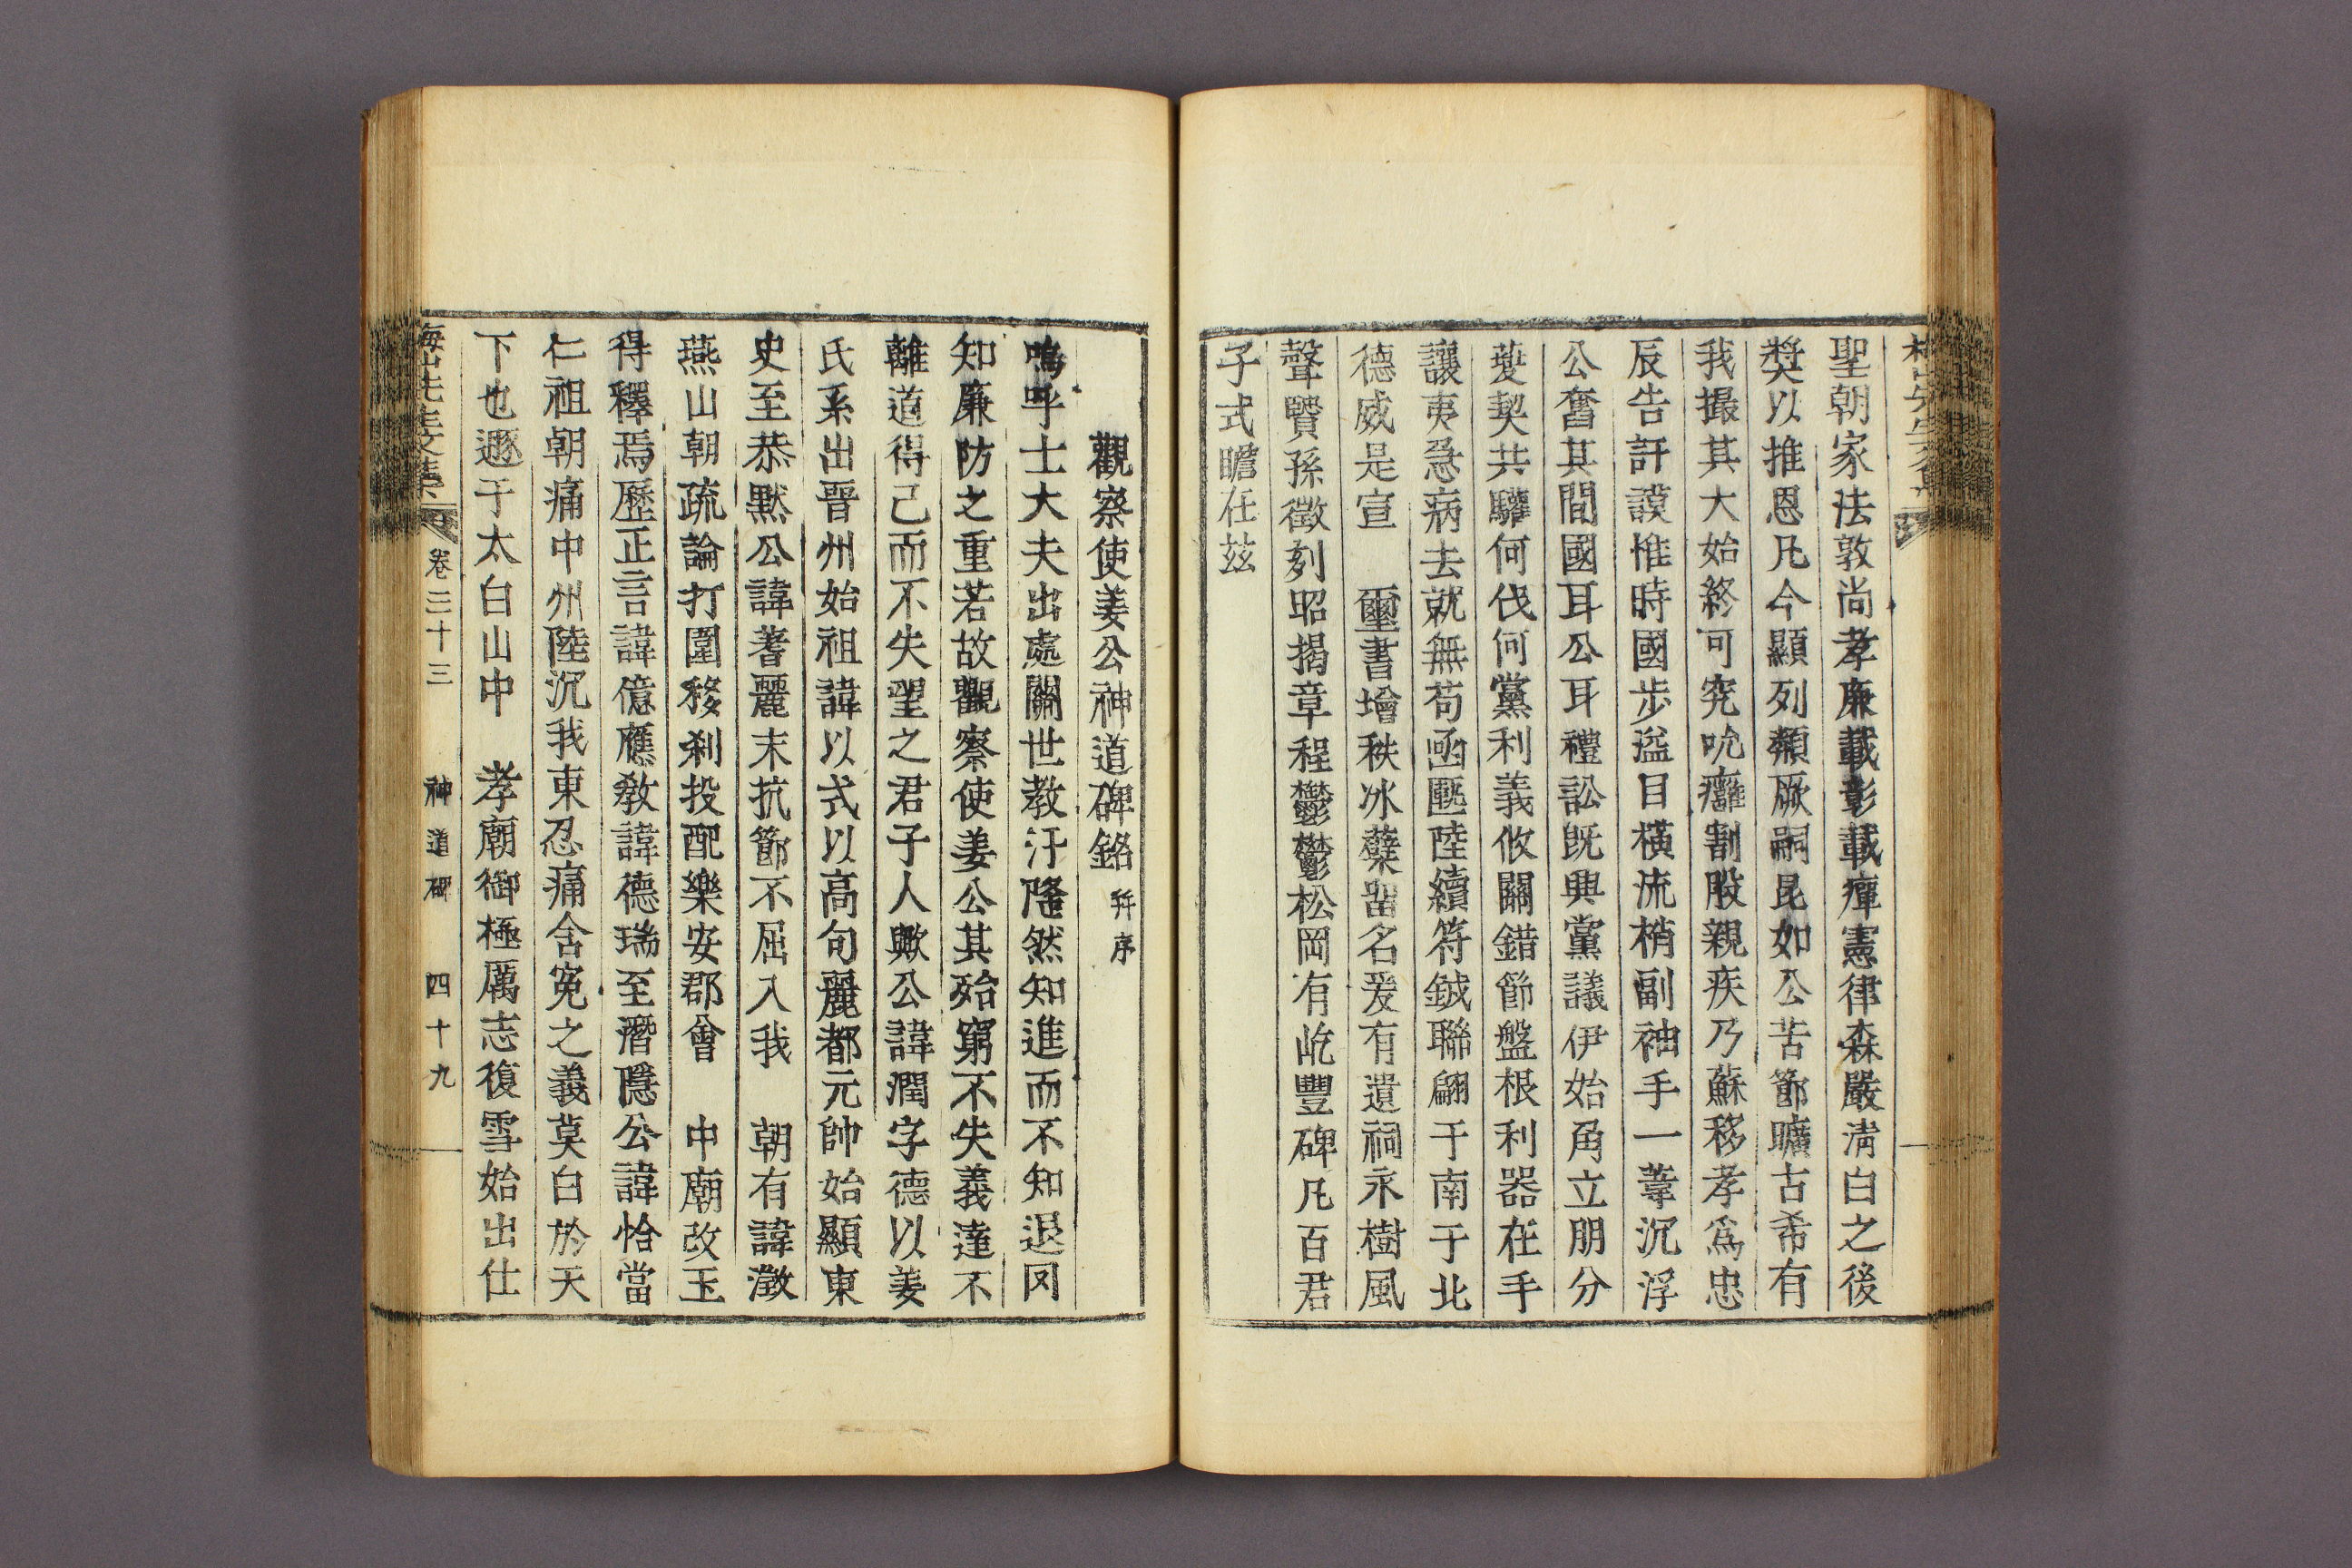 聖朝家法敦尚孝廉載彰載癉憲律森嚴淸白之後
奬以推恩凡今顯列類厥嗣昆如公苦節曠古希有
我撮其大始終可究吮癰割股親疾乃蘇移孝爲忠
辰告訏謨惟時國步溢目橫流梢副袖手一葦沉浮
公奮其間國耳公耳禮訟旣興黨議伊始角立朋分
蘷契共驩何伐何黨利義攸關錯節盤根利器在手
讓夷急病去就無苟函匭陸續符鉞聯翩于南于北
德威是宣 璽書增秩冰蘗留名爰有遺祠永樹風
聲賢孫徵列昭揭章程鬱鬱松岡有屹豐碑凡百君
子式瞻在茲
觀察使姜公神道碑銘 幷序
嗚呼士大夫出處關世敎汙隆然知進而不知退罔
知廉防之重若故觀察使姜公其殆窮不失義達不
離道得己而不失望之君子人歟公諱潤字德以姜
氏系出晋州始祖諱以式以高句麗都元帥始顯東
史至恭黙公諱蓍麗末抗節不屈入我 朝有諱澂
燕山朝疏論打圍移刹投配樂安郡會 中廟改玉
得釋焉歷正言諱億應敎諱德瑞至潛隱公諱恰當
仁祖朝痛中州陸沉我東忍痛含寃之義莫白於天
下也遯于太白山中 孝廟御極厲志復雪始出仕
卷三十三 神道碑 四十九